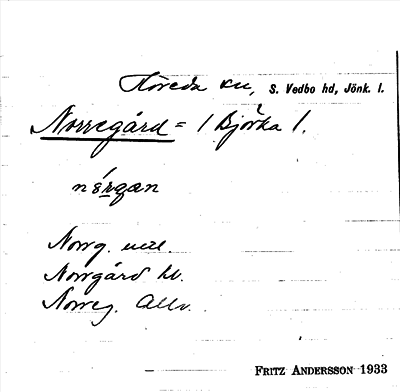 Höreda sn, S. Vedbo hd, Jönk. l.
Norregård = 1 Björka 1.
nórgan
Norrg. uttl.
Norrgård kb.
Norreg. Allm.
FRITZ ANDERSSON 1933